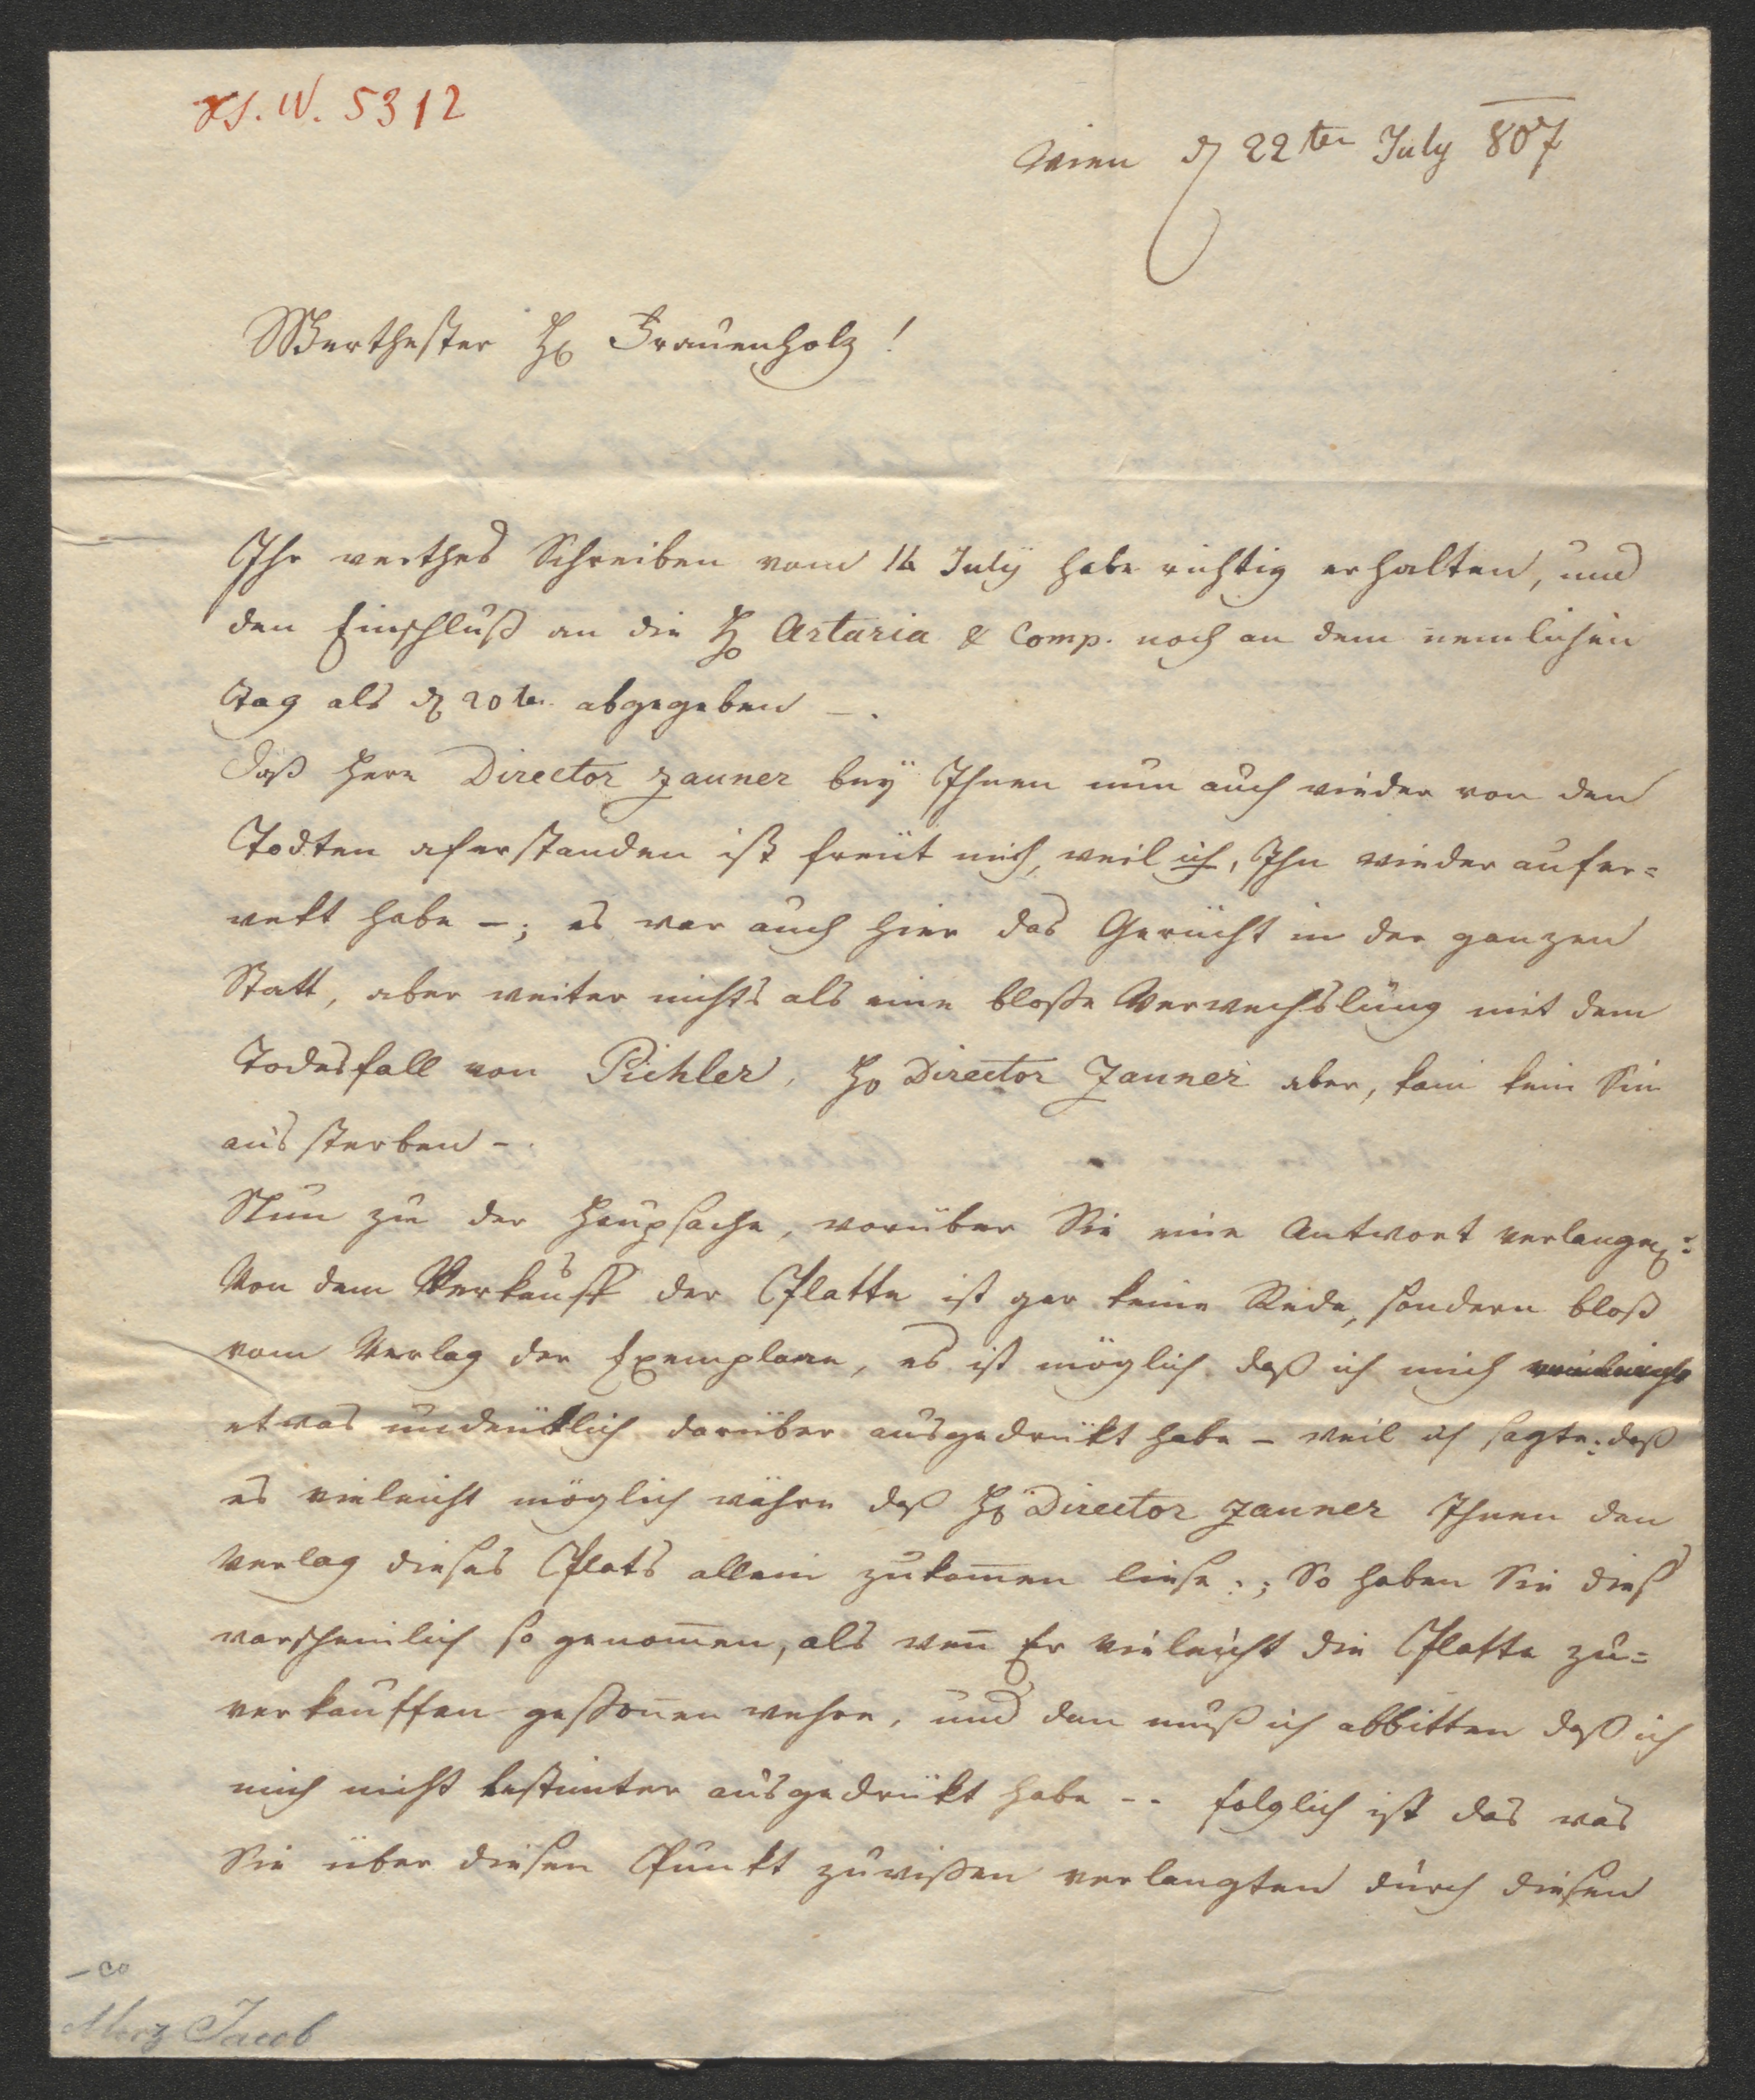 W. 5312
Wien d 22ten July 807
Werthester H Frauenholz!
Ihr werthes Schreiben vom 14 July habe richtig erhalten, und
den Einschluß an die H Artaria & Comp. noch an dem nemlichen
Tag als d 20ten abgegeben –.
Daß Herr Director Zauner bey Ihnen nun auch wieder von den
Todten aferstanden ist freüt mich, weil ich, Ihn wieder aufer=
wekt habe –; es war auch hier das Gerücht in der ganzen
Statt, aber weiter nichts als eine bloße Verwechslung mit dem
Todesfall von Pichler, H Director Zauner aber, kam kein Sin
ans sterben –.
Nun zu der Haupsache, worüber Sie eine Antwort verlangen:
Von dem Verkauff der Platte ist gar keine Rede, sondern bloß
vom Verlag der Exemplare, es ist möglich daß ich mich
etwas undeütlich darüber ausgedrükt habe – weil ich sagte: daß
es vieleicht möglich währe daß H Director Zauner Ihnen den
Verlag dieses Plats allein zukom̄en liese:; So haben Sie dieß
warscheinlich so genom̄en, als wen̄ Er vieleicht die Platte zu=
verkauffen gesson̄en wehre, und dan muß ich abbitten daß ich
mich nicht bestimter ausgedrükt habe –. folglich ist das was
Sie über diesen Punkt zuwißen verlangten durch diesen
Merz Jacob